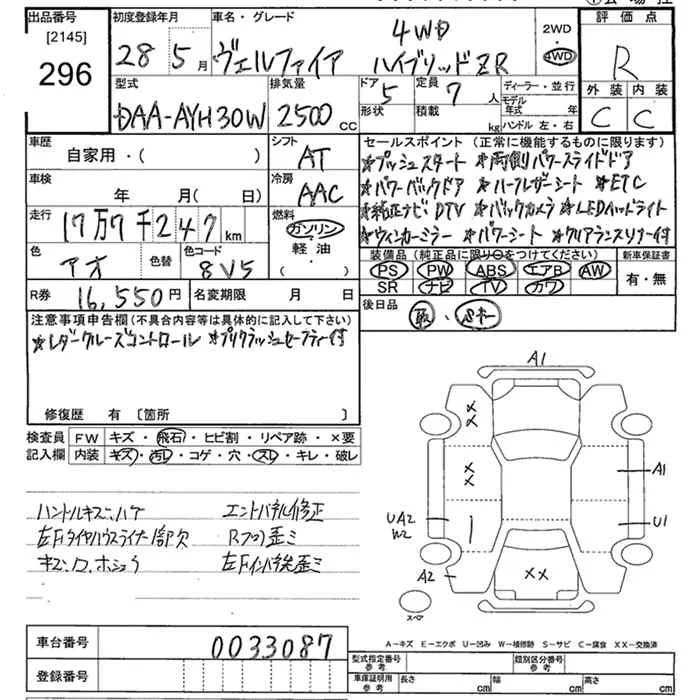 出品番号 初度登録年月 車名・グレード 評価点
[2145]
296
28 5月 ヴェルファイア 4WD ハイブリッドZR
2WD
4WD
R
型式 排気量 ドア 定員 ディーラー・並行 外装 内装
DAA-AYH30W 2500cc 5 7人 モデル年式 年 C C
形状 積載 kg ハンドル 左・右
車歴 シフト セールスポイント (正常に機能するものに限ります)
自家用・( ) AT
*プッシュスタート *両側パワースライドドア
車検 冷房 *パワーバックドア *ハーフレザーシート *ETC
年 月(日) AAC
*純正ナビDTV *バックカメラ *LEDヘッドライト
走行 燃料 *ウィンカーミラー *パワーシート *クリアランスソナー付
17万7千247km ガソリン
軽油
色 色替 色コード 装備品 (純正品に限り○をつけてください) 新車保証書
アオ 8V5
PS PW ABS エアB AW 有・無
SR ナビ TV カワ
R券 16,550円 名変期限 月 日
後日品 取・
注意事項申告欄(不具合内容等は具体的に記入して下さい)
*レダークルーズコントロール *プリクラッシュセーフティー付
修復歴 有 〔箇所 〕
検査員 FW キズ・飛石・ヒビ割・リペア跡・×要
記入欄 内装 キズ・汚レ・コゲ・穴・スレ・キレ・破レ
ハンドルキズ・ハゲ エンドパネル修正
左Fタイヤハウスライナー一部欠 Rフロア歪ミ
左Fインパネ先歪ミ
A1
XX
XX
A1
UA2
W2
U1
A2
XX
スペア
A-キズ E-エクボ U-凹み W-補修跡 S-サビ C-腐食 XX-交換済
車台番号 0033087
登録番号
型式指定番号 参考 類別区分番号 参考
車庫証明用 参考 長さ cm 幅 cm 高さ cm